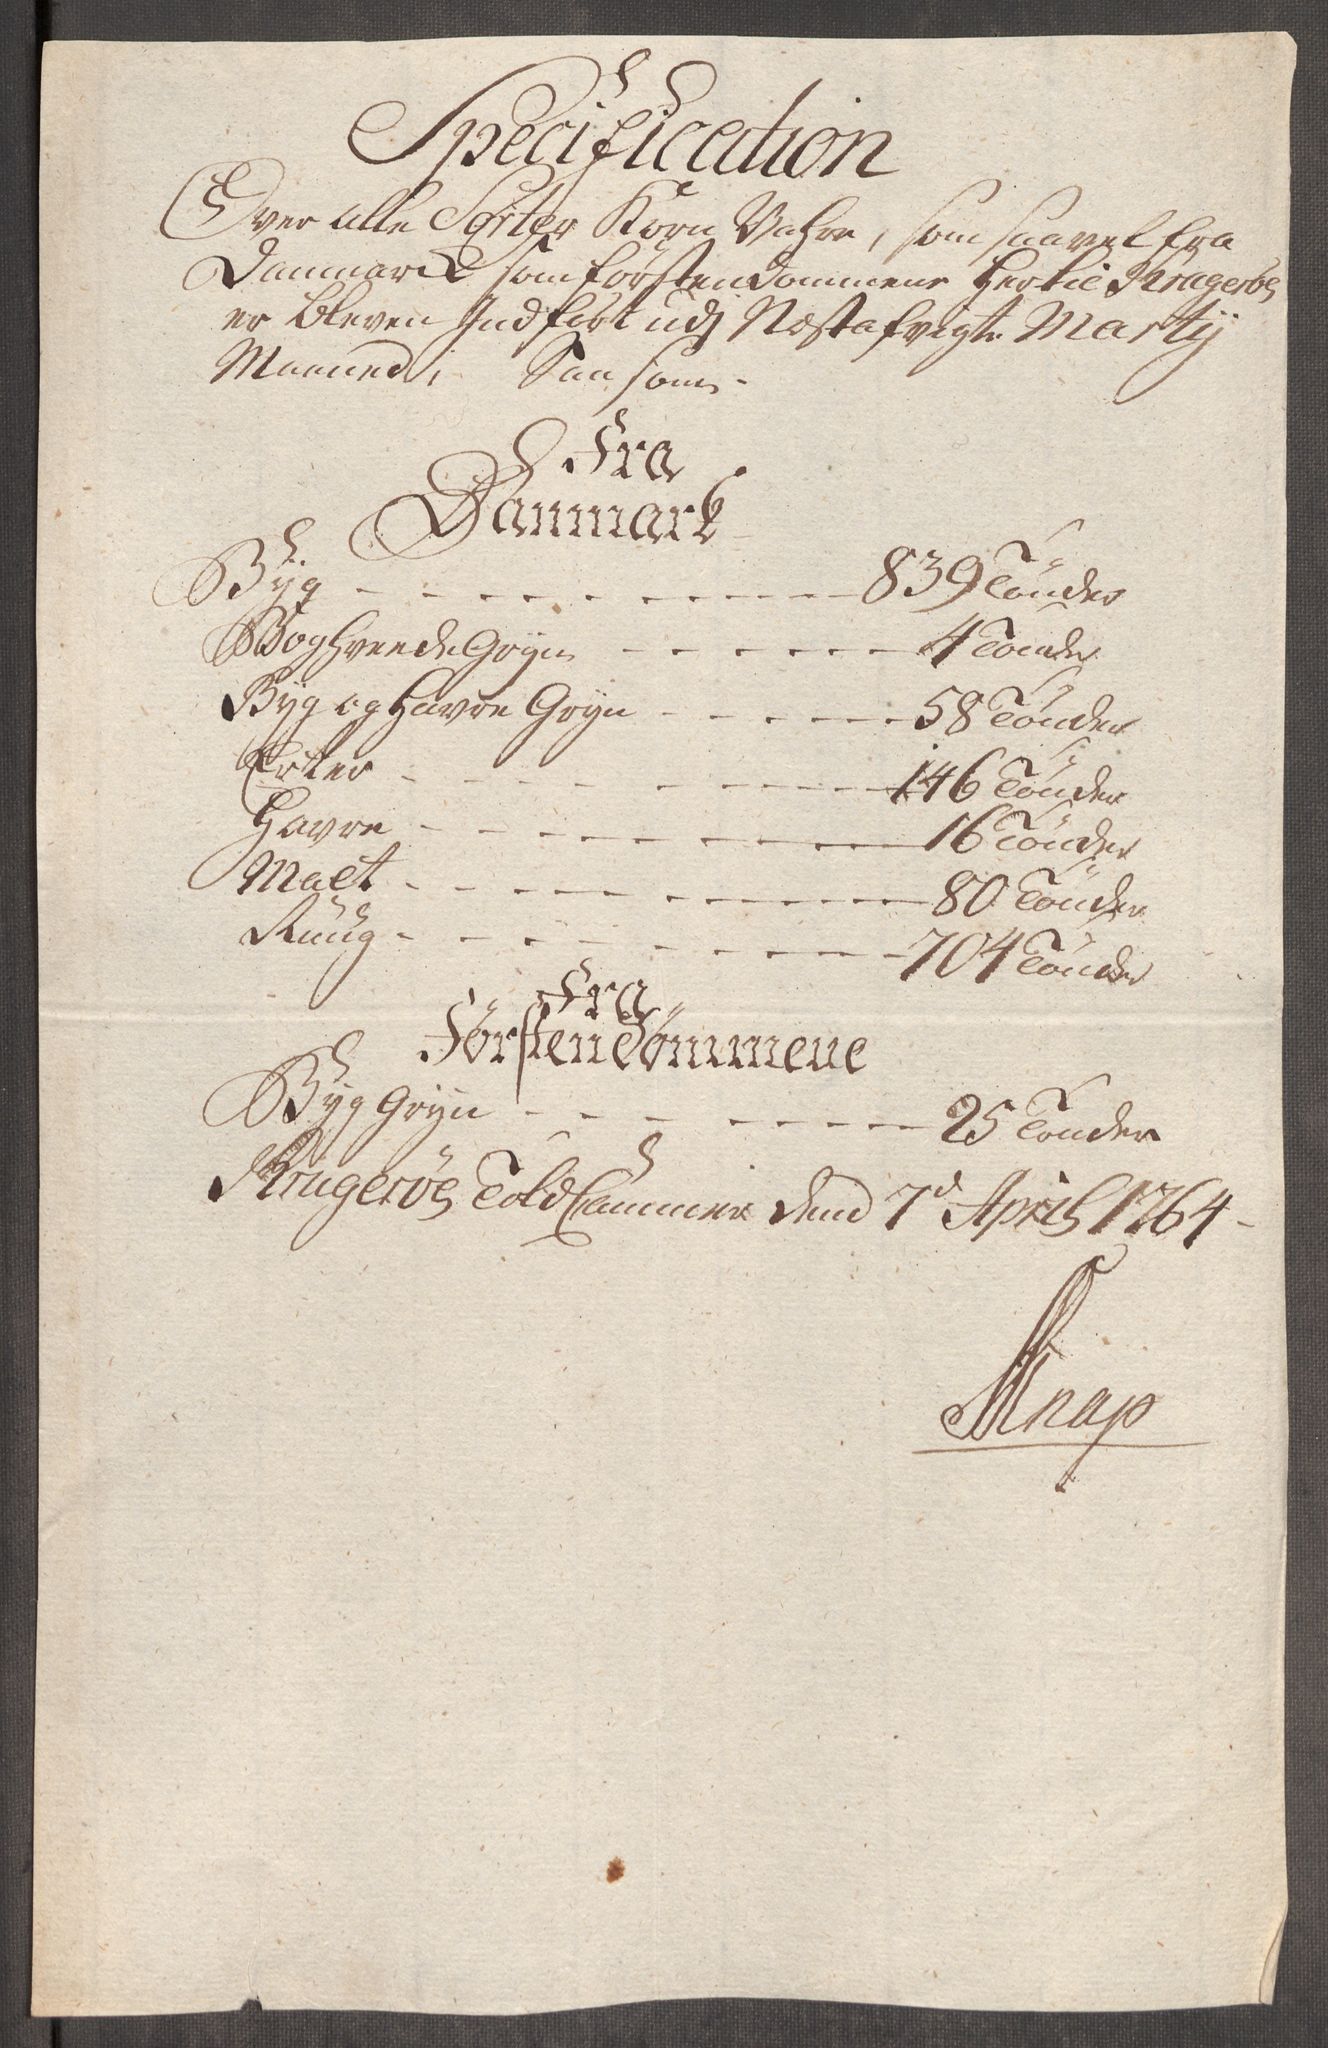 Specification
Over alle Sorter Korn Vahre, som saavel fra
Danmark somførstendommene hertil Kragerøe
er bleven Indført udj Næstafvigte Martij
Maaned, Saasom.
Fra
Danmark
Byg 839 Tønder
Boghveede Gryn 4 Tønder
Byg og Havre Gryn 58 Tønder
Erter 146 Tønder
Havre 16 Tønder
Malt 80 Tønder
Ruug 704 Tønder
Fra
Førstendømmene
Byg Gryn 25 Tønder
Kragerøe Told Cammer dend 7d April 1764
Knap